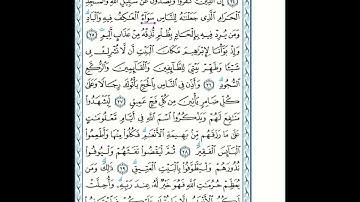 إِنَّ ٱلَّذِينَ كَفَرُوا۟ وَيَصُدُّونَ عَن سَبِيلِ ٱللَّهِ وَٱلْمَسْجِدِ
ٱلْحَرَامِ ٱلَّذِى جَعَلْنَٰهُ لِلنَّاسِ سَوَآءً ٱلْعَٰكِفُ فِيهِ وَٱلْبَادِ
وَمَن يُرِدْ فِيهِ بِإِلْحَادٍۭ بِظُلْمٍ نُّذِقْهُ مِنْ عَذَابٍ أَلِيمٍ ٢٥
وَإِذْ بَوَّأْنَا لِإِبْرَٰهِيمَ مَكَانَ ٱلْبَيْتِ أَن لَّا تُشْرِكْ بِى
شَيْـًٔا وَطَهِّرْ بَيْتِىَ لِلطَّآئِفِينَ وَٱلْقَآئِمِينَ وَٱلرُّكَّعِ
ٱلسُّجُودِ ٢٦ وَأَذِّن فِى ٱلنَّاسِ بِٱلْحَجِّ يَأْتُوكَ رِجَالًا وَعَلَىٰ
كُلِّ ضَامِرٍ يَأْتِينَ مِن كُلِّ فَجٍّ عَمِيقٍ ٢٧ لِّيَشْهَدُوا۟
مَنَٰفِعَ لَهُمْ وَيَذْكُرُوا۟ ٱسْمَ ٱللَّهِ فِىٓ أَيَّامٍ مَّعْلُومَٰتٍ
عَلَىٰ مَا رَزَقَهُم مِّنۢ بَهِيمَةِ ٱلْأَنْعَٰمِ فَكُلُوا۟ مِنْهَا وَأَطْعِمُوا۟
ٱلْبَآئِسَ ٱلْفَقِيرَ ٢٨ ثُمَّ لْيَقْضُوا۟ تَفَثَهُمْ وَلْيُوفُوا۟
نُذُورَهُمْ وَلْيَطَّوَّفُوا۟ بِٱلْبَيْتِ ٱلْعَتِيقِ ٢٩ ذَٰلِكَ وَمَن
يُعَظِّمْ حُرُمَٰتِ ٱللَّهِ فَهُوَ خَيْرٌ لَّهُۥ عِندَ رَبِّهِۦ وَأُحِلَّتْ